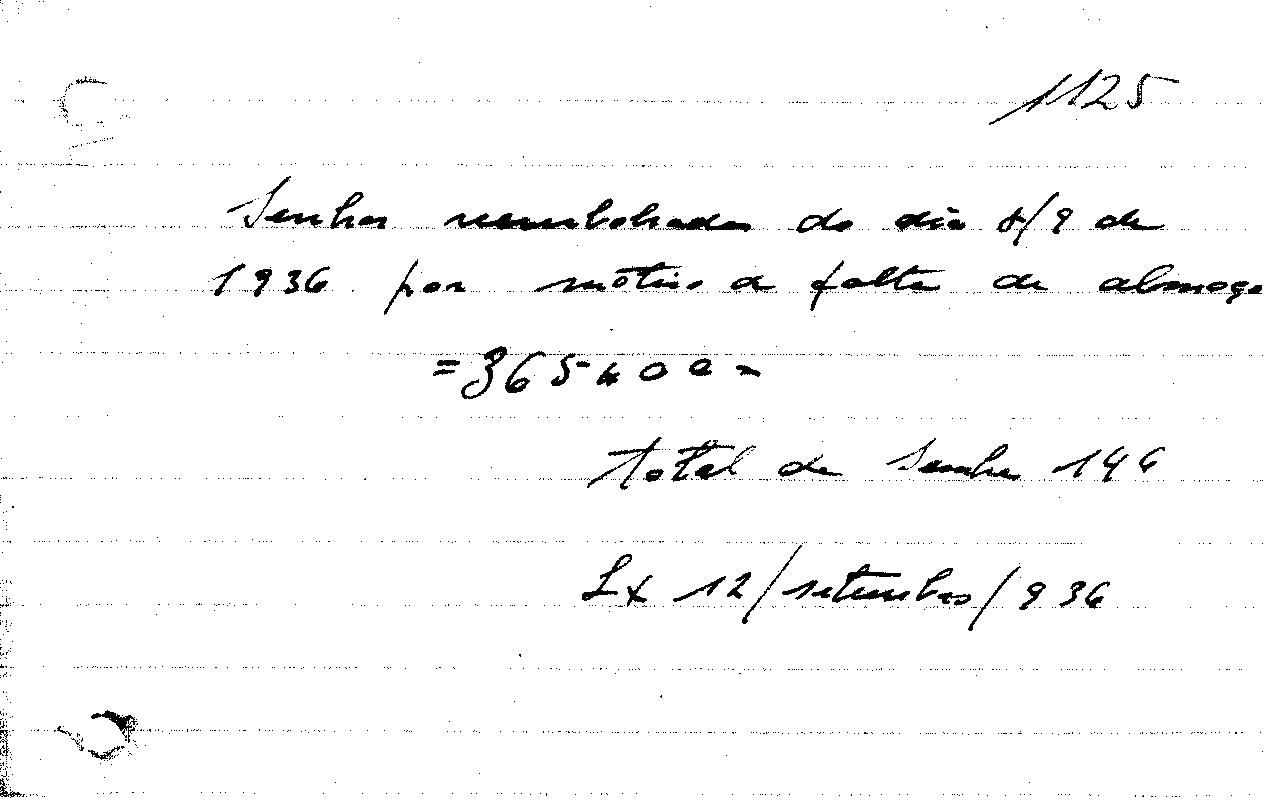 1125
Senhas reembolsadas do dia 8/9 de
1936 por mótivo de falta de almoço
= 365$00 =
total de senhas 146
Lx 12/setembro/936